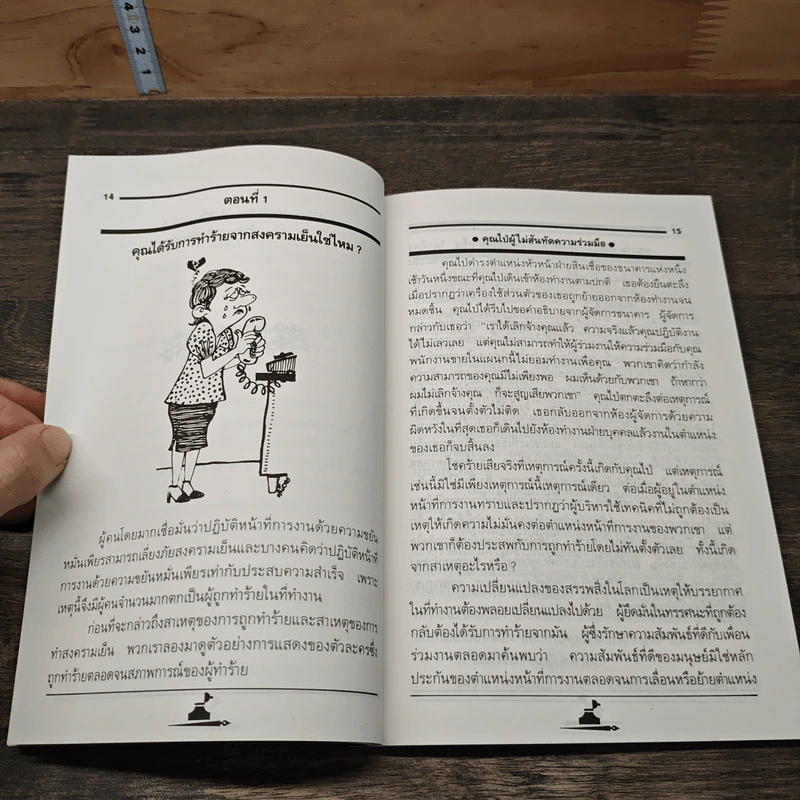 4
3
2
1
14
ตอนที่ 1
คุณได้รับการทำร้ายจากสงครามเย็นใช่ไหม ?
ผู้คนโดยมากเชื่อมั่นว่าปฏิบัติหน้าที่การงานด้วยความขยัน
หมั่นเพียรสามารถเลี่ยงภัยสงครามเย็นและบางคนคิดว่าปฏิบัติหน้าที่
การงานด้วยความขยันหมั่นเพียรเท่ากับประสบความสำเร็จ เพราะ
เหตุนี้จึงมีผู้คนจำนวนมากตกเป็นผู้ถูกทำร้ายในที่ทำงาน
ก่อนที่จะกล่าวถึงสาเหตุของการถูกทำร้ายและสาเหตุของการ
ทำสงครามเย็น พวกเราลองมาดูตัวอย่างการแสดงของตัวละครซึ่ง
ถูกทำร้ายตลอดจนสภาพการณ์ของผู้ทำร้าย
15
● คุณไป๋ผู้ไม่สันทัดความร่วมมือ ●
คุณไป๋ดำรงตำแหน่งหัวหน้าฝ่ายสินเชื่อของธนาคารแห่งหนึ่ง
เช้าวันหนึ่งขณะที่คุณไป๋เดินเข้าห้องทำงานตามปกติ เธอต้องยืนตะลึง
เมื่อปรากฏว่าเครื่องใช้ส่วนตัวของเธอถูกย้ายออกจากห้องทำงานจน
หมดชิ้น คุณไป๋ได้รีบไปขอคำอธิบายจากผู้จัดการธนาคาร ผู้จัดการ
กล่าวกับเธอว่า "เราได้เลิกจ้างคุณแล้ว ความจริงแล้วคุณปฏิบัติงาน
ได้ไม่เลวเลย แต่คุณไม่สามารถทำให้ผู้ร่วมงานให้ความร่วมมือกับคุณ
พนักงานชายในแผนกนี้ไม่ยอมทำงานเพื่อคุณ พวกเขาคิดว่ากำลัง
ความสามารถของคุณมีไม่เพียงพอ ผมเห็นด้วยกับพวกเขา ถ้าหากว่า
ผมไม่เลิกจ้างคุณ ก็จะสูญเสียพวกเขา" คุณไป๋ตกตะลึงต่อเหตุการณ์
ที่เกิดขึ้นจนตั้งตัวไม่ติด เธอกลับออกจากห้องผู้จัดการด้วยความ
ผิดหวังในที่สุดเธอก็เดินไปยังห้องทำงานฝ่ายบุคคลแล้วงานในตำแหน่ง
ของเธอก็จบสิ้นลง
โชคร้ายเสียจริงที่เหตุการณ์ครั้งนี้เกิดกับคุณไป๋ แต่เหตุการณ์
เช่นนี้มิใช่มีเพียงเหตุการณ์นี้เหตุการณ์เดียว ต่อเมื่อผู้อยู่ในตำแหน่ง
หน้าที่การงานทราบและปรากฏว่าผู้บริหารใช้เทคนิคที่ไม่ถูกต้องเป็น
เหตุให้เกิดความไม่มั่นคงต่อตำแหน่งหน้าที่การงานของพวกเขา แต่
พวกเขาก็ต้องประสพกับการถูกทำร้ายโดยไม่ทันตั้งตัวเลย ทั้งนี้เกิด
จากสาเหตุอะไรหรือ ?
ความเปลี่ยนแปลงของสรรพสิ่งในโลกเป็นเหตุให้บรรยากาศ
ในที่ทำงานต้องพลอยเปลี่ยนแปลงไปด้วย ผู้ยึดมั่นในทรรศนะที่ถูกต้อง
กลับต้องได้รับการทำร้ายจากมัน ผู้ซึ่งรักษาความสัมพันธ์ที่ดีกับเพื่อน
ร่วมงานตลอดมาค้นพบว่า ความสัมพันธ์ที่ดีของมนุษย์มิใช่หลัก
ประกันของตำแหน่งหน้าที่การงานตลอดจนการเลื่อนหรือย้ายตำแหน่ง